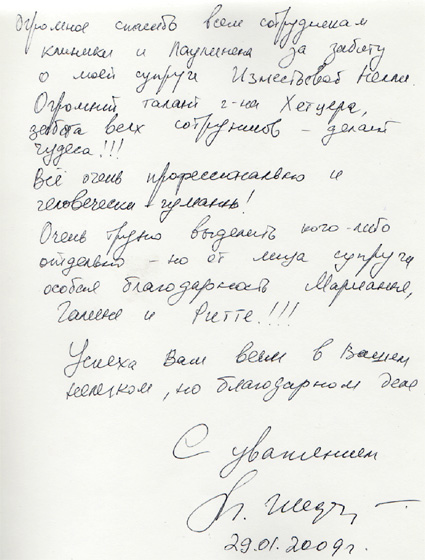 Огромное спасибо всем сотрудникам
клиники и Паулинена за заботу
о моей супруги Изместьевой Нелли.
Огромный талант г-на Хетцера,
забота всех сотрудников – делает
чудеса!!!
Всё очень профессионально и
человечески-гуманны!
Очень трудно выделить кого-либо
отдельно – но от лица супруги
особая благодарность Марианне,
Галине и Ритте!!!
Успеха Вам всем в Вашем
нелегком, но благодарном деле
С уважением
29.01.2009г.